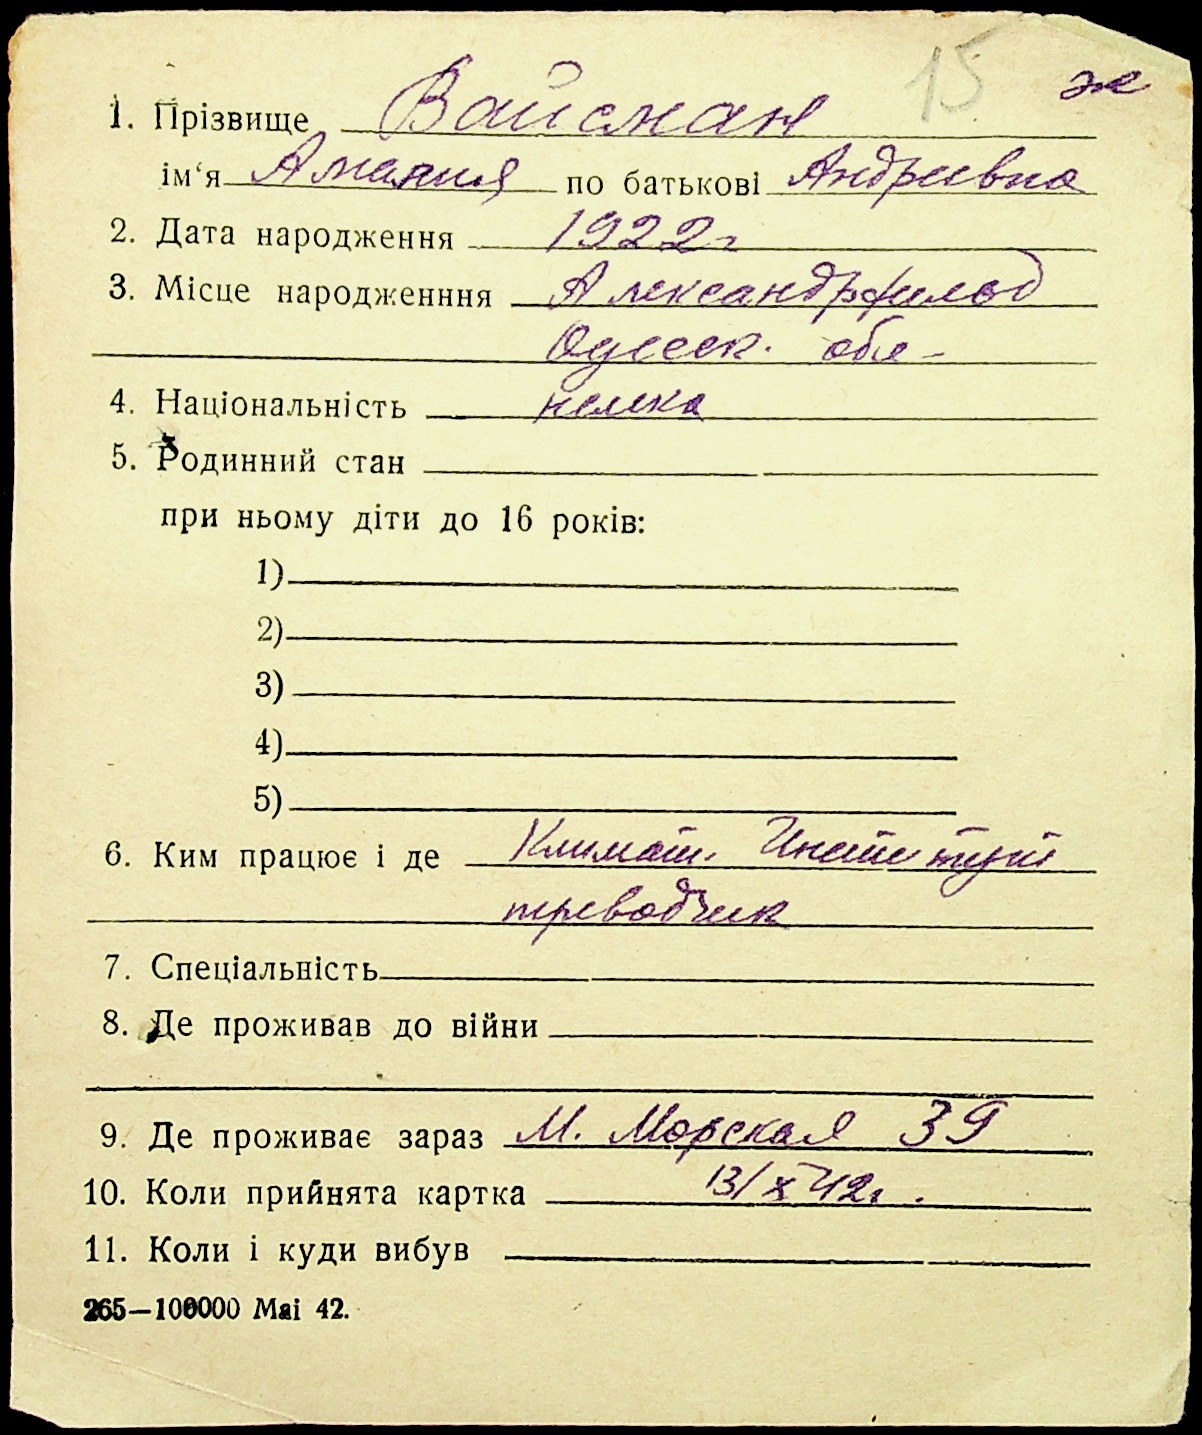 15 эк
1. Прізвище Вайсман
ім‘я Амания по батькові Андреевна
2. Дата народження 1922 г
3. Місце народженння Александрфельд
Одесск. обл-
4. Національність немка
5. Родинний стан
при ньому діти до 16 років:
1)
2)
3)
4)
5)
6. Ким працює і де Климат. Институт
переводчик
7. Спеціальність
8. Де проживав до війни
9. Де проживає зараз М. Морская 39
10. Коли прийнята картка 13/X 42 г.
11. Коли і куди вибув
265—100000 Маі 42.